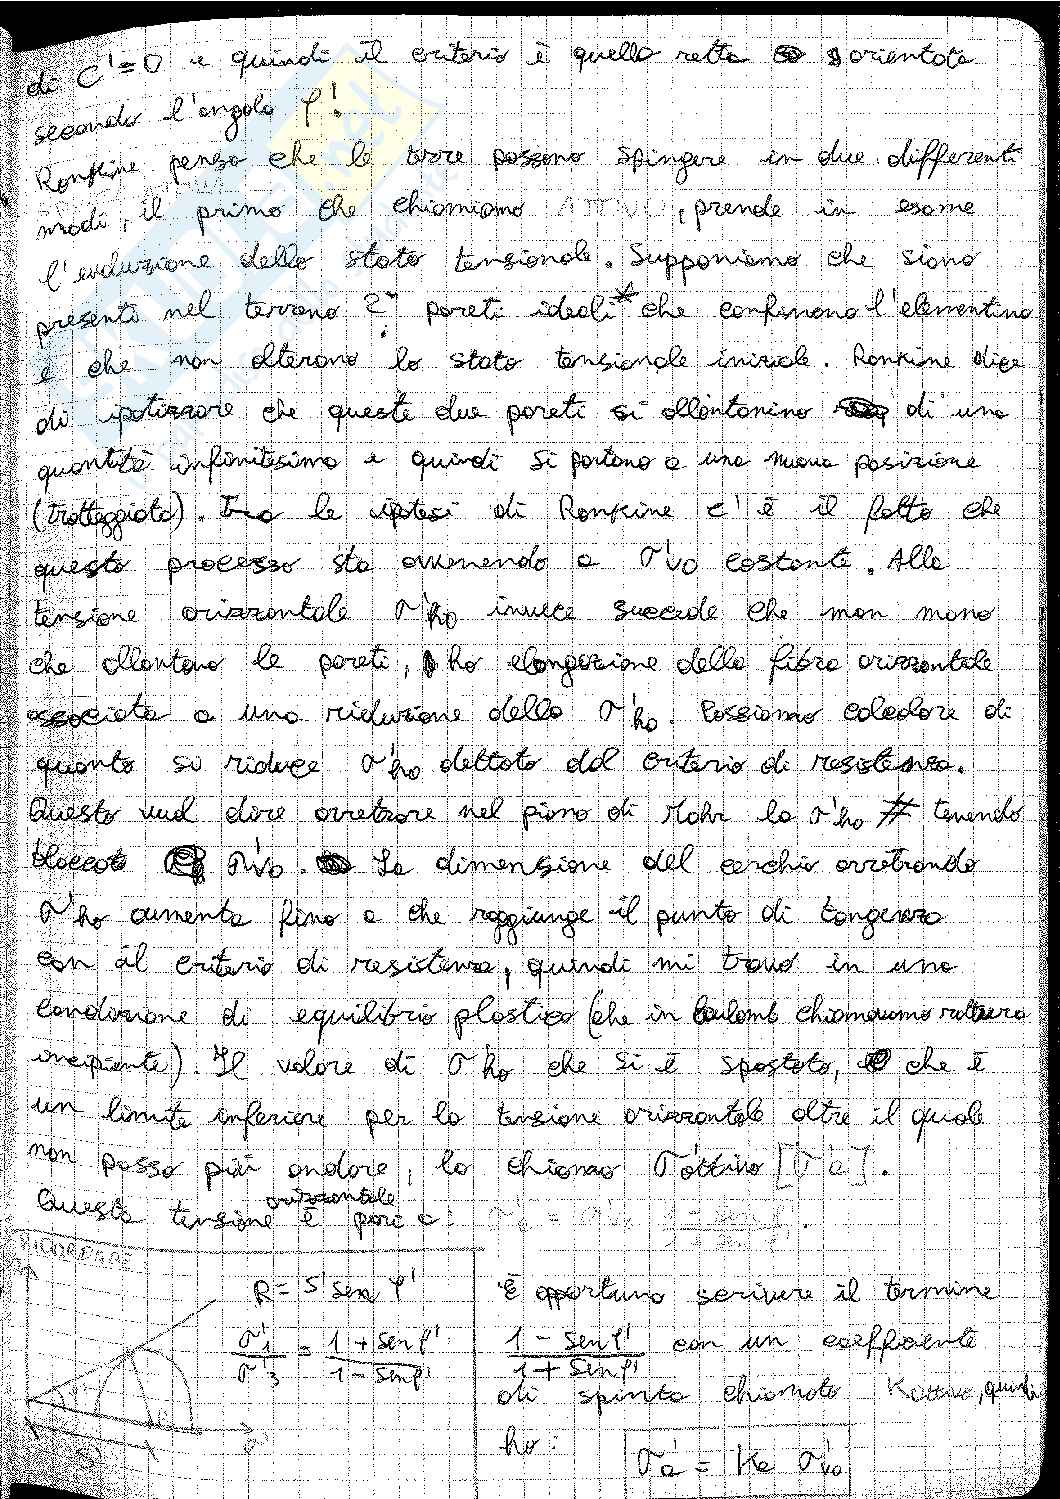 di C'=0 e quindi il criterio è quella retta orientata
secondo l'angolo φ'.
Rankine pensa che le terre possono spingere in due differenti
modi, il primo che chiamiamo ATTIVO, prende in esame
l'evoluzione dello stato tensionale. Supponiamo che siano
presenti nel terreno 2 pareti ideali* che confinano l'elementino
e che non alterano lo stato tensionale iniziale. Rankine dice
di ipotizzare che queste due pareti si allontanino di una
quantità infinitesima e quindi si portano a una nuova posizione
(tratteggiata). Tra le ipotesi di Rankine c'è il fatto che
questo processo sta avvenendo a σ'v0 costante. Alla
tensione orizzontale σ'h0 invece succede che man mano
che allontano le pareti, ho elongazione della fibra orizzontale
associata a una riduzione della σ'h0. Possiamo calcolare di
quanto si riduce σ'h0 dettato dal criterio di resistenza.
Questo vuol dire arretrare nel piano di Mohr la σ'h0 # tenendo
bloccata σ'v0. La dimensione del cerchio arretrando
σ'h0 aumenta fino a che raggiunge il punto di tangenza
con il criterio di resistenza, quindi mi trovo in una
condizione di equilibrio plastico (che in Coulomb chiamavamo rottura
incipiente). Il valore di σ'h0 che si è spostato, che è
un limite inferiore per la tensione orizzontale oltre il quale
non posso più andare, lo chiamo σ'attivo [σ'a].
Questa tensione orizzontale è pari a: σ'a = σ'v0 (1 - sen φ')/(1 + sen φ').
RICORDARE
R = S' sen φ'
σ'1/σ'3 = (1 + sen φ')/(1 - sen φ')
È opportuno scrivere il termine
(1 - sen φ')/(1 + sen φ') con un coefficiente
di spinta chiamato Kattivo, quindi
ho:
σ'a = Ka σ'v0